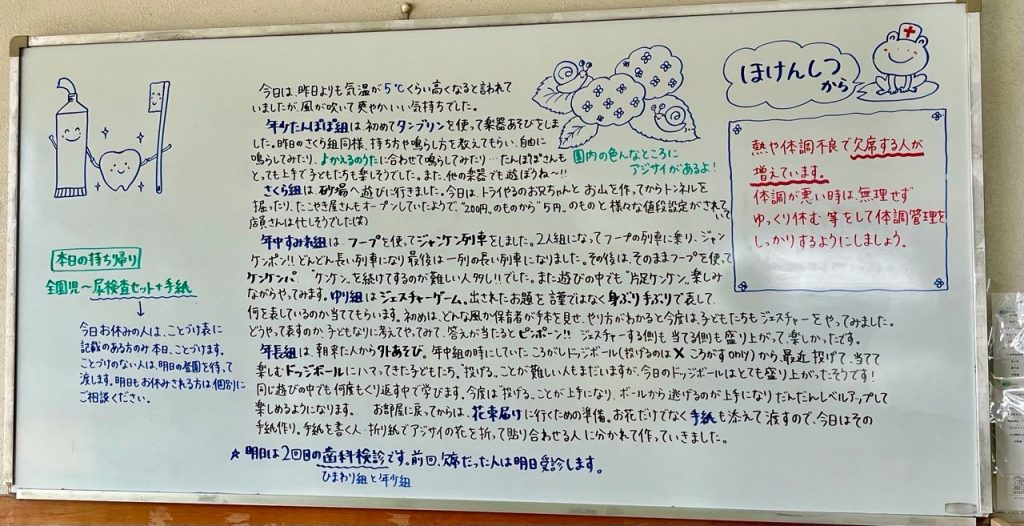 今日は、昨日よりも気温が5℃くらい高くなると言われて
いましたが、風が吹いて爽やかいい気持ちでした。
年少たんぽぽ組は、初めてタンブリンを使って楽器あそびをしま
した。昨日のさくら組同様、持ち方や鳴らし方を教えてもらい、自由に
鳴らしてみたり、♪かえるのうたに合わせて鳴らしてみたり…たんぽぽさんも
とっても上手で子どもたちも楽しそうでした。また、他の楽器でも遊ぼうね〜!!
さくら組は、砂場へ遊びに行きました。今日は、トライやるのお兄ちゃんと お山を作ってからトンネルを
掘ったり、たこやき屋さんもオープンしていたようで、"200円"のものから"5円"のものと様々な値段設定がされていて
店員さんは忙しそうでした(笑)
年中すみれ組は、フープを使ってジャンケン列車をしました。2人組になってフープの列車に乗り、ジャン
ケンポン!! どんどん長い列車になり最後は一列の長い列車になりました。その後は、そのままフープを使って
ケンケンパ。"ケンケン"を続けてするのが難しい人多し!!でした。また遊びの中でも"片足ケンケン"楽しみ
ながらやってみます。ゆり組はジェスチャーゲーム。出されたお題を言葉ではなく身ぶり手ぶりで表して、
何を表しているのか当ててもらいます。初めは、どんな風か保育者が手本を見せ、やり方がわかると今度は、子どもたちもジェスチャーをやってみました。
どうやって表すのか、子どもなりに考えてやってみて、答えが当たるとピンポーン!! ジェスチャーする側も当てる側も盛り上がって楽しかったです。
年長組は、朝来た人から外あそび。年中組の時にしていたころがしドッジボール(投げるのは× ころがすonly)から、最近投げて、当てて
楽しむドッジボールにハマってきた子どもたち。"投げる"ことが難しい人もまだいますが、今日のドッジボールはとても盛り上がったそうです!
同じ遊びの中でも何度もくり返す中で学びます。今度は"投げる"ことが上手になり、ボールから逃げるのが上手になり だんだんレベルアップして
楽しめるようになります。 お部屋に戻ってからは、花束届けに行くための準備。お花だけでなく手紙も添えて渡すので、今日はその
手紙作り。手紙を書く人・折り紙でアジサイの花を折って貼り合わせる人に分かれて作っていきました。
☆ 明日は2回目の歯科検診です。前回、欠席だった人は明日受診します。
ひまわり組と年少組
園内の色んなところに
アジサイがあるよ!
本日の持ち帰り
全園児〜尿検査セット+手紙
今日お休みの人は、ことづけ表に
記載のある方のみ本日、ことづけます。
ことづけのない人は、明日の登園を待って
渡します。明日もお休みされる方は個別に
ご相談ください。
ほけんしつ
から
熱や体調不良で欠席する人が
増えています。
体調が悪い時は、無理せず
ゆっくり休む 等をして体調管理を
しっかりするようにしましょう。